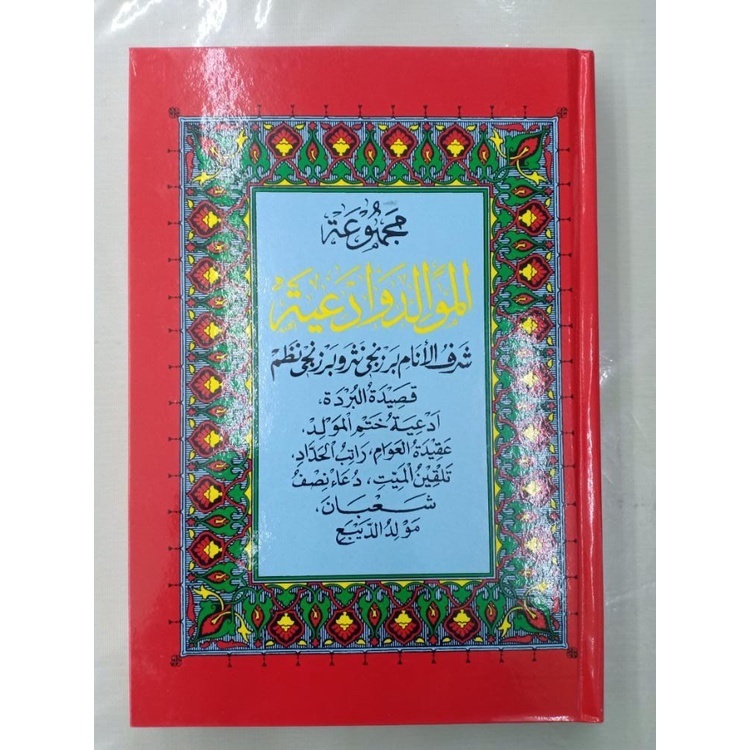 مَجْمُوْعَة
المَوَالِد وَاَدْعِيَة
شرف الأنام برزنجى نثر وبرزنجى نظم
قصِيْدَة البُردَة،
ادعِيَة خَتم المَولِد،
عقِيدَة العوام، راتِبُ الحَدَّادِ،
تلقِينُ المَيِّتِ، دُعَاء نِصْفُ
شَعْبَان،
مَولِدُ الدَّيْبَع